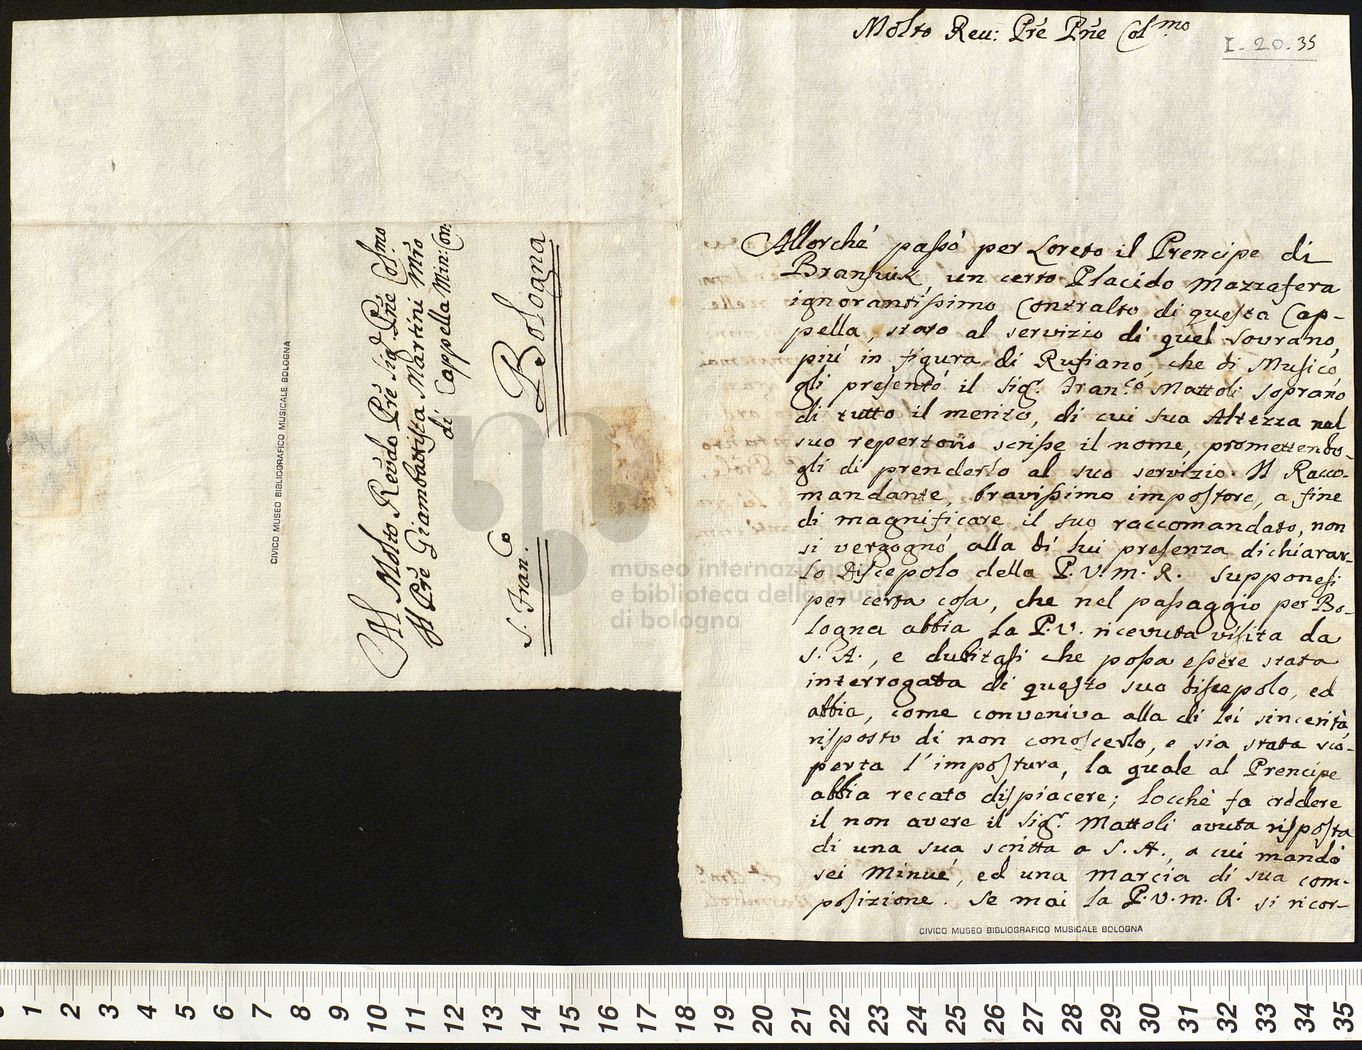 Al Molto Reudo Pre Sigr Pne Colmo
Il Pre Giambattista Martini Mro
di Cappella Min: Con:
Bologna
S. Franco
CIVICO MUSEO BIBLIOGRAFICO MUSICALE BOLOGNA
Molto Reu: Pre Pne Colmo
I. 20. 35
Allorché passò per Loreto il Prencipe di
Bransuik, un certo Placido Mazzafera
ignorantissimo Contralto di questa Cap-
pella, stato al servizio di quel Sovrano,
più in figura di Rufiano, che di Musico,
gli presentò il Sigr. Franco Mattoli soprano
di tutto il merito, di cui sua Altezza nel
suo repertorio scrisse il nome, promettendo-
gli di prenderlo al suo servizio. Il Racco-
mandante, bravissimo impostore, a fine
di magnificare il suo raccomandato, non
si vergognò alla di lui presenza dichiarar-
lo discepolo della P.V.M.R. Supponesi
per certa cosa, che nel passaggio per Bo-
logna abbia la P.V. ricevuta visita da
S. A., e dubitasi che possa essere stata
interrogata di questo suo discepolo, ed
abbia, come conveniva alla di lei sincerità
risposto di non conoscerlo, e sia stata sco-
perta l'impostura, la quale al Prencipe
abbia recato dispiacere; locchè fa credere
il non avere il Sigr. Mattoli avuta risposta
di una sua scritta a S. A., a cui mandò
sei Minué, ed una marcia di sua com-
posizione. Se mai la P.V.M.R. si ricor-
CIVICO MUSEO BIBLIOGRAFICO MUSICALE BOLOGNA
museo internazionale
e biblioteca della musica
di bologna
1 2 3 4 5 6 7 8 9 10 11 12 13 14 15 16 17 18 19 20 21 22 23 24 25 26 27 28 29 30 31 32 33 34 35